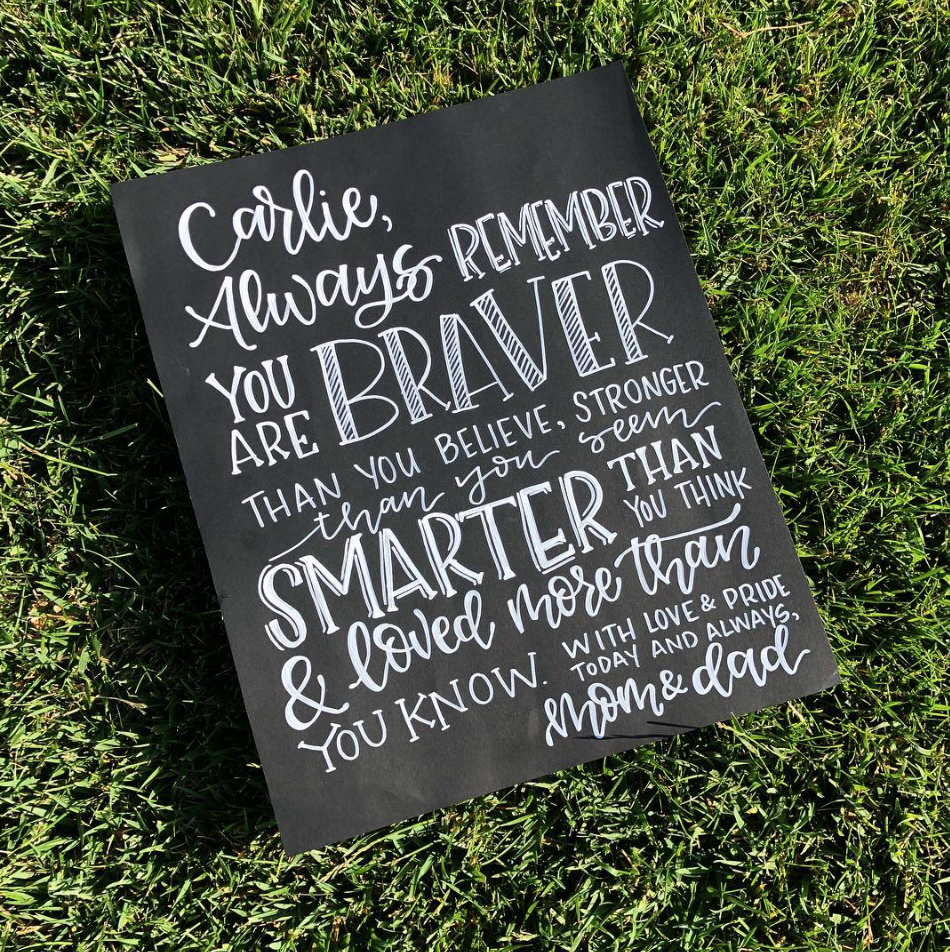 Carlie,
Always REMEMBER
YOU
ARE BRAVER
THAN YOU BELIEVE, STRONGER
than you seem
SMARTER THAN
YOU THINK
& loved more than
YOU KNOW. WITH LOVE & PRIDE
TODAY AND ALWAYS,
mom & dad